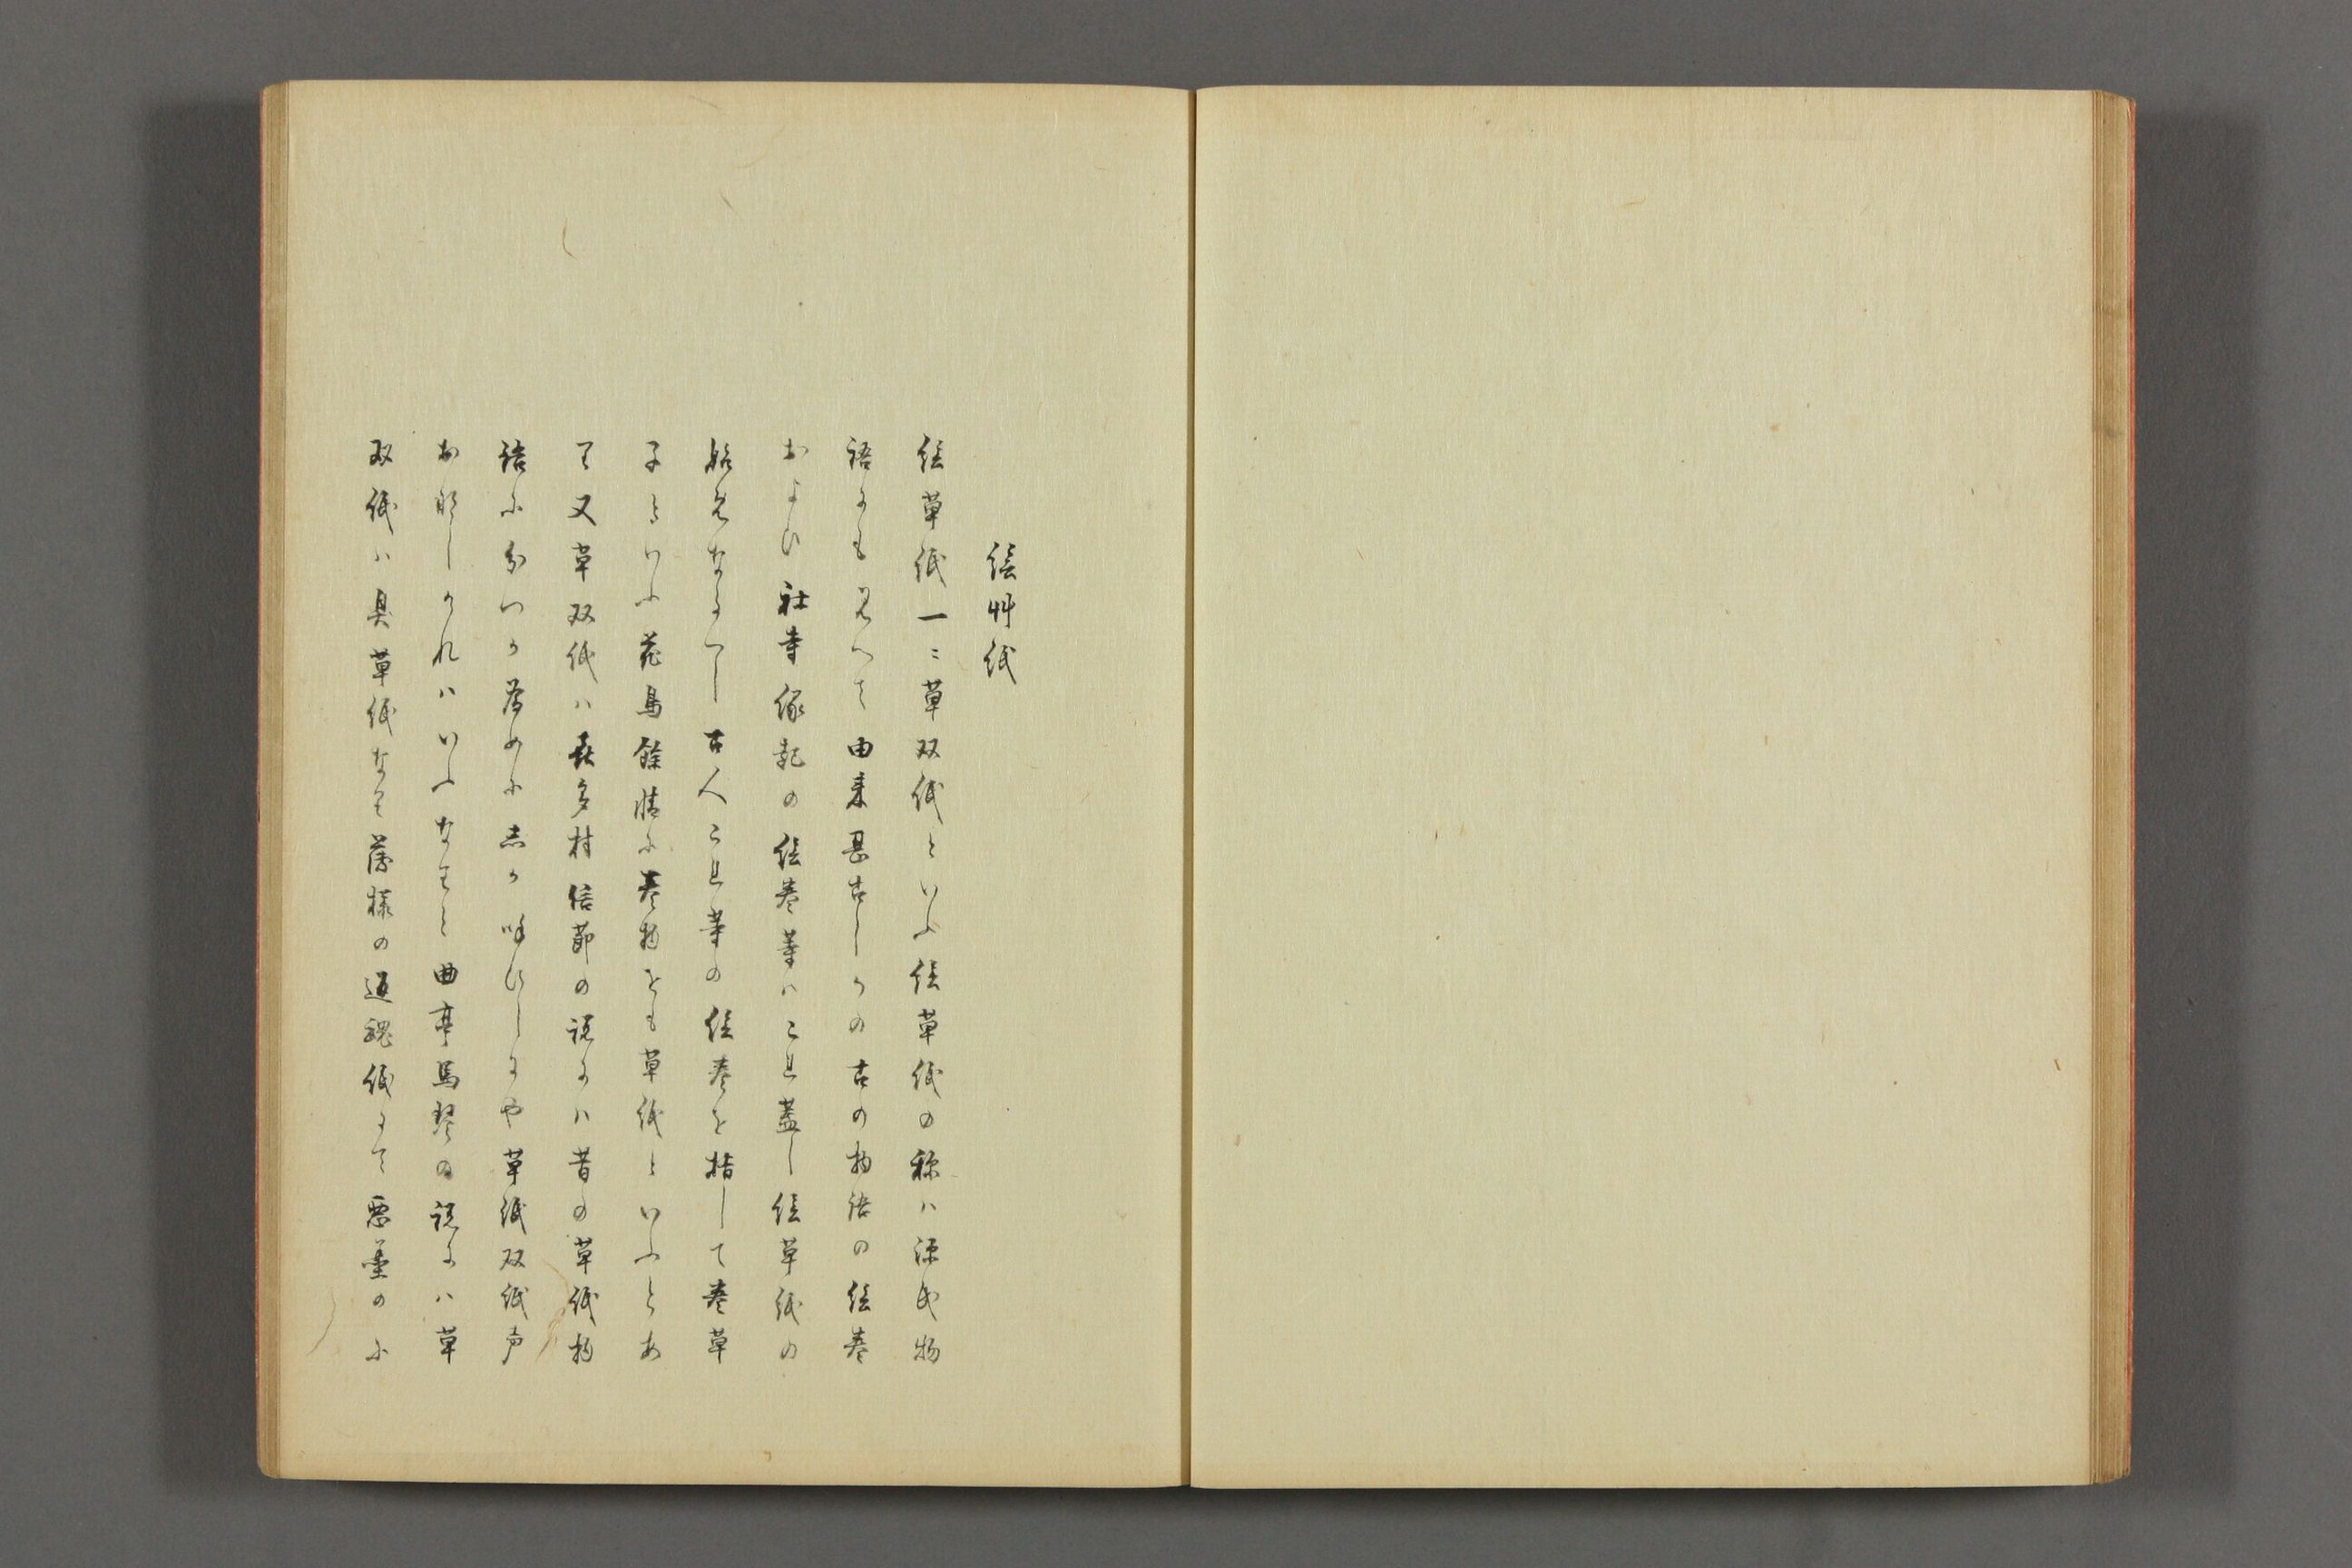 絵艸紙
絵草紙一ニ草双紙といふ絵草紙の称ハ源氏物
語にも見へて由来甚古しかの古の物語の絵巻
および社寺縁起の絵巻等ハこれ蓋し絵草紙の
始めなるべし古人これ等の絵巻を指して巻草
子といふ花鳥餘情に巻物をも草紙といふとあ
り又草双紙ハ喜多村信節の説にハ昔の草紙物
語に分つか為めに志か呼ひしにや草紙双紙声
お那しけれハいふなりと曲亭馬琴の説にハ草
双紙ハ臭草紙なり薄様の返魂紙にて悪墨のに